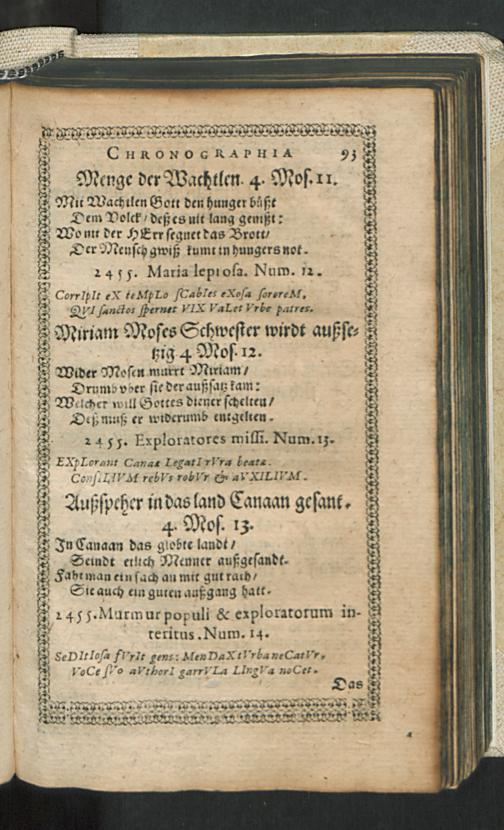 CHRONOGRAPHIA 93
Menge der Wachtlen. 4. Mos. 11.
Mit Wachtlen Gott den hunger büßt
Dem Volck / deß es nit lang genißt:
Wo nit der HErr segnet das Brott /
Der Mensch gwiß kumt in hungers not.
2455. Maria leprosa. Num. 12.
CorrIpIt eX teMpLo sCabIes eXosa sororeM,
QVI sanctos spernet VIX VaLet Vrbe patres.
Miriam Moses Schwester wirdt außse-
tzig 4 Mos. 12.
Wider Mosen murrt Miriam /
Drumb vber sie der außsatz kam:
Welcher will Gottes diener schelten /
Deß muß er widerumb entgelten.
2455. Exploratores missi. Num. 13.
EXpLorant Canaæ LegatI rVra beatæ.
ConsILIVM rebVs robVr & aVXILIVM.
Außspeher in das land Canaan gesant.
4. Mos. 13.
In Canaan das globte landt /
Seindt etlich Menner außgesandt.
Faht man ein sach an mit gut rath /
Sie auch ein guten außgang hatt.
2455. Murmur populi & exploratorum in-
teritus. Num. 14.
SeDItIosa fVrIt gens: MenDaX tVrba neCatVr,
VoCe sVo aVthorI garrVLa LIngVa noCet.
Das